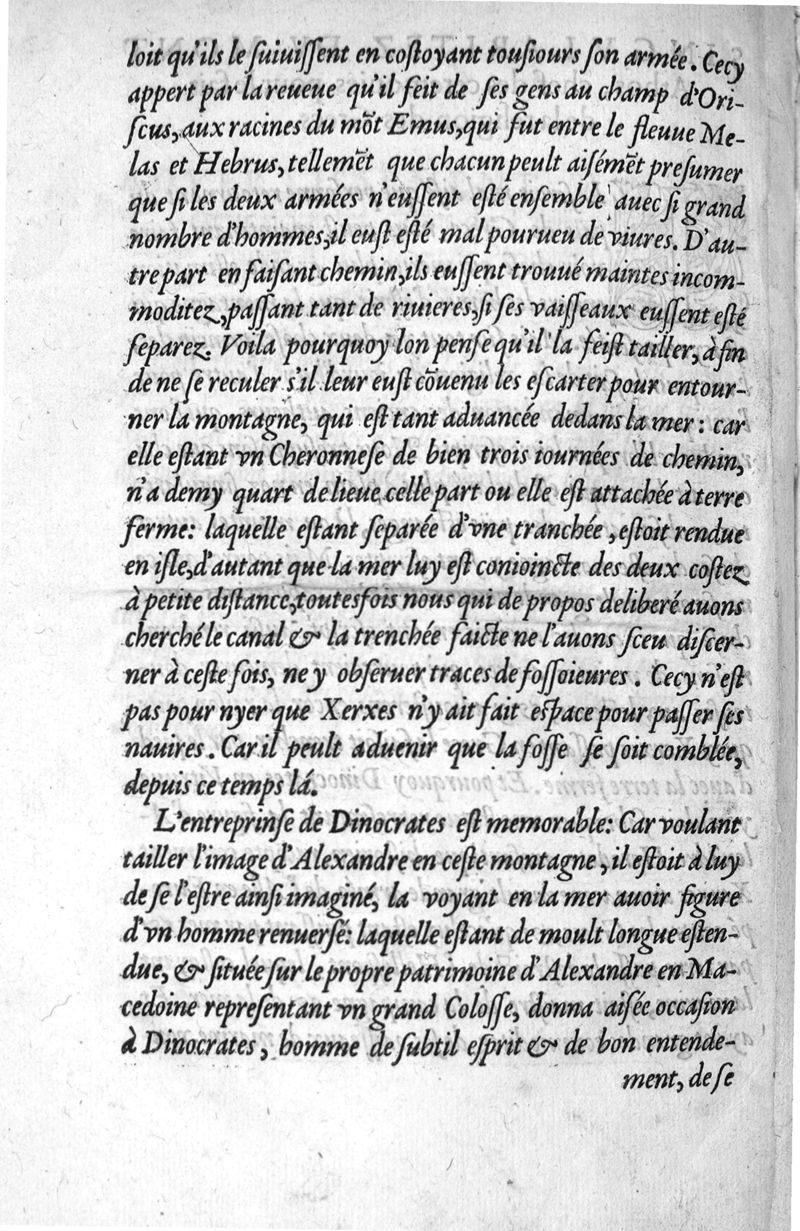 loit qu'ils le ſuiuiſſent en coſtoyant touſiours ſon armée. Cecy
appert par la reueue qu'il feit de ſes gens au champ d'Ori-
ſcus, aux racines du mõt Emus, qui fut entre le fleuue Me-
las et Hebrus, tellemẽt que chacun peult aiſémẽt preſumer
que ſi les deux armées n'euſſent eſté enſemble auec ſi grand
nombre d'hommes, il euſt eſté mal pourueu de viures. D'au-
tre part en faiſant chemin, ils euſſent trouué maintes incom-
moditez, paſſant tant de riuieres, ſi ſes vaiſſeaux euſſent eſté
ſeparez. Voila pourquoy lon penſe qu'il la feiſt tailler, à fin
de ne ſe reculer s'il leur euſt cõuenu les eſcarter pour entour-
ner la montagne, qui eſt tant aduancée dedans la mer: car
elle eſtant vn Cheronneſe de bien trois iournées de chemin,
n'a demy quart de lieue celle part ou elle eſt attachée à terre
ferme: laquelle eſtant ſeparée d'vne tranchée, eſtoit rendue
en iſle, d'autant que la mer luy eſt conioincte des deux coſtez
à petite diſtance, toutesfois nous qui de propos deliberé auons
cherché le canal & la trenchée faicte ne l'auons ſceu diſcer-
ner à ceſte fois, ne y obſeruer traces de foſſoieures. Cecy n'eſt
pas pour nyer que Xerxes n'y ait fait eſpace pour paſſer ſes
nauires. Car il peult aduenir que la foſſe ſe ſoit comblée,
depuis ce temps lá.
L'entreprinſe de Dinocrates eſt memorable: Car voulant
tailler l'image d'Alexandre en ceſte montagne, il eſtoit à luy
de ſe l'eſtre ainſi imaginé, la voyant en la mer auoir figure
d'vn homme renuerſé: laquelle eſtant de moult longue eſten-
due, & ſituée ſur le propre patrimoine d'Alexandre en Ma-
cedoine repreſentant vn grand Coloſſe, donna aiſée occaſion
à Dinocrates, homme de ſubtil eſprit & de bon entende-
ment, de ſe